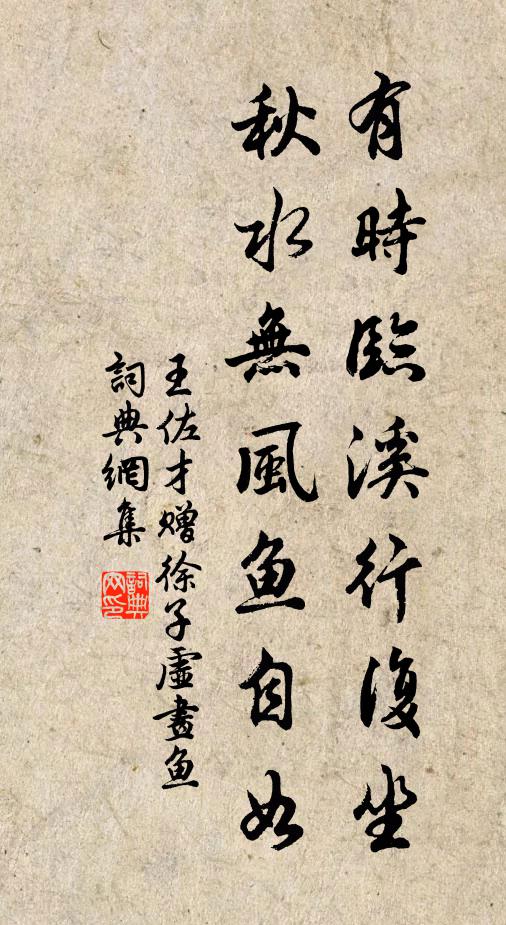 有時臨溪行復坐
秋水無風魚自如
王佐才贈徐子虛畫魚
詞典網集
詞典網印